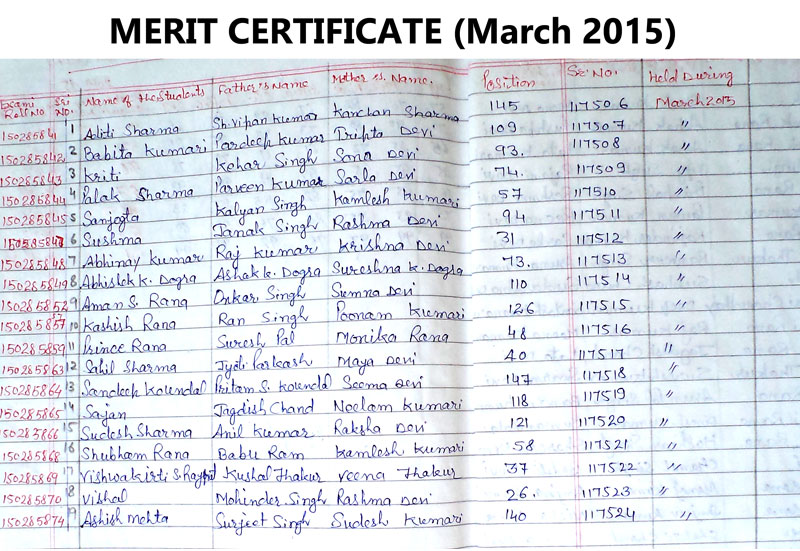 MERIT CERTIFICATE (March 2015)
Exami Roll No Sr. No. Name of the Students Father's Name Mother's Name. Position Sr. No. Held During
150285841 1 Aditi Sharma Sh. Vipan Kumar Kanchan Sharma 145 117506 March 2015
150285842 2 Babita Kumari Pardeep Kumar Tripta Devi 109 117507 "
150285843 3 Kriti Kehar Singh Sana Devi 93. 117508 "
150285844 4 Palak Sharma Parveen Kumar Sarla Devi 74. 117509 "
150285845 5 Sanjogta Kalyan Singh Kamlesh Kumari 57 117510 "
6 Sushma Janak Singh Rashma Devi 94 117511 "
150285848 7 Abhinay Kumar Raj Kumar Krishna Devi 31 117512 "
150285849 8 Abhishek K. Dogra Ashok K. Dogra Sureshna K. Dogra 73. 117513 "
150285852 9 Aman S. Rana Onkar Singh Sumna Devi 110 117514 "
150285857 10 Kashish Rana Ran Singh Poonam Kumari 126 117515 "
150285859 11 Prince Rana Suresh Pal Monika Rana 48 117516 "
150285863 12 Sahil Sharma Jyoti Parkash Maya Devi 40 117517 "
150285864 13 Sandeep Koundal Pritam S. Koundal Seema Devi 147 117518 "
150285865 14 Sajan Jagdish Chand Neelam Kumari 118 117519 "
150285866 15 Sudesh Sharma Anil Kumar Raksha Devi 121 117520 "
150285868 16 Shubham Rana Babu Ram Kamlesh Kumari 58 117521 "
150285869 17 Vishwakirti S. Kushal Thakur Veena Thakur 37 117522 "
150285870 18 Vishal Mohinder Singh Rashma Devi 26. 117523 "
150285874 19 Ashish Mehta Surjeet Singh Sudesh Kumari 140 117524 "